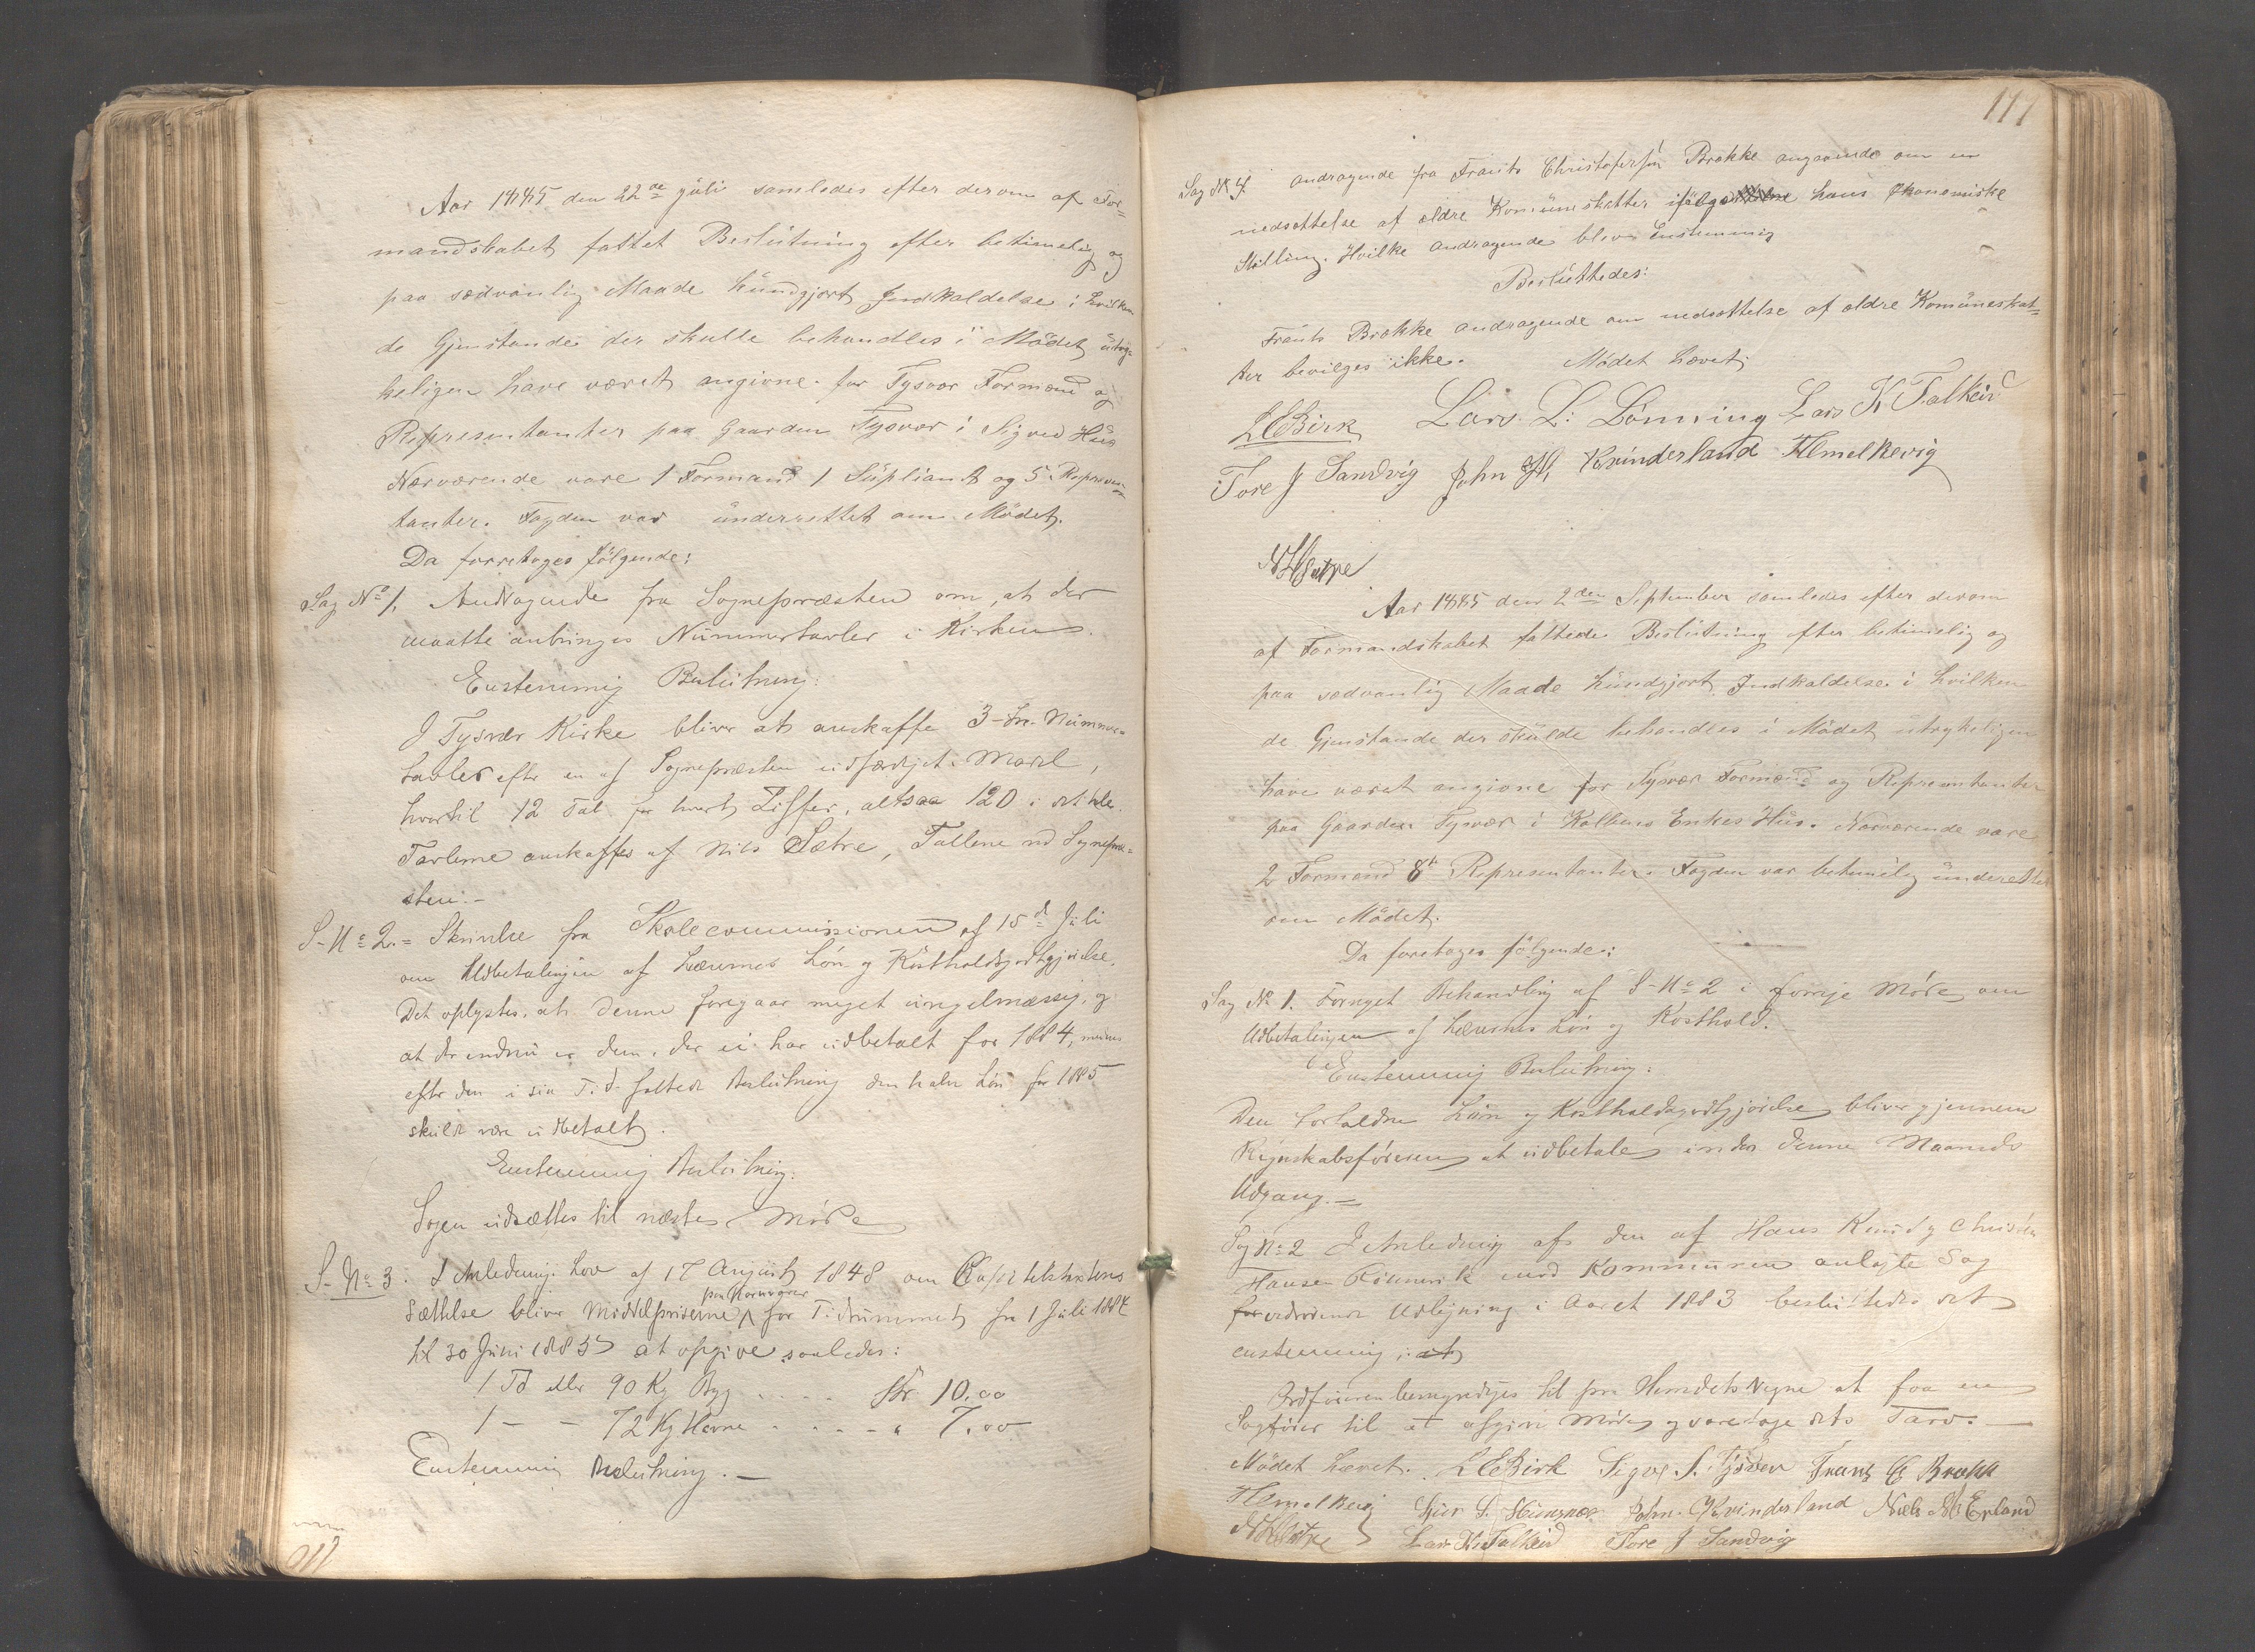 Aar 1885 den 22de Juli samledes efter derom af For=
mandskabet fattet Beslutning efter betimelig og
paa sædvanlig Maade kundgjort Indkaldelse i hvilken
de Gjenstande der skulle behandles i Mödet udtryk-
keligen have været angivne. for Tysvær Formænd og
Representanter paa Gaarden Tysvær i Sigved Hus
Nærværende vare 1 Formand 1 Supliant og 5 Represen-
tanter. Fogden var underrettet om Mödet.
Da forretoges fölgende:
Sag No 1. Andragende fra Sognepræsten om, at der
maatte anbringes Nummertavler i Kirken.
Enstemmig Beslutning:
I Tysvær Kirke bliver at anskaffe 3-tre-Nummer-
tavler efter en af Sognepræsten udfærdiget Model,
hvortil 12 Tal for hvert Ziffer, altsaa 120 i det hele.
Tavlerne anskaffes af Nils Sætre, Tallene ved Sognepræ=
sten.-
S-No 2.= Skrivelse fra Skolecommissionen af 15de Juli
om Udbetalingen af Lærernes Lön og Kostholdsgodtgjörelse.
Det oplystes, at denne foregaar meget uregelmæssig, og
at der endnu er dem, der ei har udbetalt for 1884, medens
efter den i sin Tid fattede Beslutning den halve Lön for 1885
skulde være udbetalt.
Enstemmig Beslutning:
Sagen udsættes til næste Möde
S-No 3. I Anledning Lov af 17 August 1848 om Capitelstaxtens
paa Kornvarer
Sættelse bliver Middelpriserne for Tidsrummet fra 1 Juli 1884
til 30 Juni 1885 at opgive saaledes:
1 Td eller 90 Kg Byg .... Kr 10,00
1 - - 72 Kg Havre .... " 7,00
Enstemmig Beslutning.-
117
Sag No 4. Andragende fra Frants Christofersen Brække angaaende om en
nedsættelse af ældre Komüneskatter ifölge hans Ökonomiske
Stilling. Hvilke Andragende blev Enstemmig
Besluttedes:
Frants Brække andragende om nedsættelse af ældre Komüneskat=
ter bevilges ikke. Mödet hævet.
LEBirk Lars L: Lönning Lars K Falkeid
Tore J Sandvig John H, Kvinderland HEmelkevig
NHSætre
Aar 1885 den 2den September samledes efter derom
af Formandskabet fattede Beslutning efter betimelig og
paa sædvanlig Maade kundgjort Indkaldelse i hvilken
de Gjenstande der skulde behandles i Mödet utrykeligen
have været angivne for Tysvær Formænd og Representanter
paa Gaarden Tysvær i Kolbens Enkes Hus. Nærværende vare
2 Formænd 8te Representanter. Fogden var betimelig underettet
om Mödet.
Da foretoges fölgende:
Sag No 1. Fornyet Behandling af S-No 2 i forrige Möde om
Udbetalingen af Lærernes Lön og Kosthold.
Enstemmig Beslutning:
Den forfaldne Lön og Kostholdsgodtgjörelse bliver gjennem
Regnskabsföreren at udbetale inden denne Maaneds
Udgang.-
Sag No 2 I Anledning af den af Hans Knud og Christen
Hansen mod Kommunen anlagte Sag
for vedrörende Udligning i Aaret 1883 besluttedes det
enstemmig: at
Ordföreren bemyndiges til paa Herredets Vegne at faa en
Sagförer til at afgive Möde og varetage dets Tarv.-
Mödet hævet. LEBirk Sigve S. Tysvær Frants C Brække
HEmelkevig Sjur S. Hünsnæs John. Kvinderland Niels M Erland
NHSætre Lars K. Falkeid Tore J Sandvig